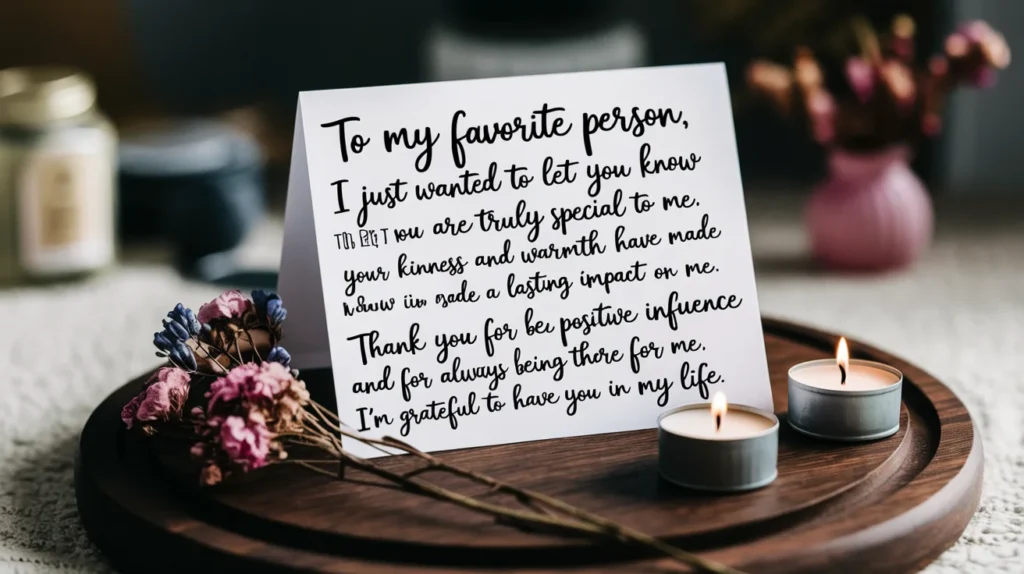 To my favorite person,
I just wanted to let you know
you are truly special to me.
your kinness and warmth have made
a lasting impact on me.
Thank you for positive influence
and for always being there for me.
I'm grateful to have you in my life.